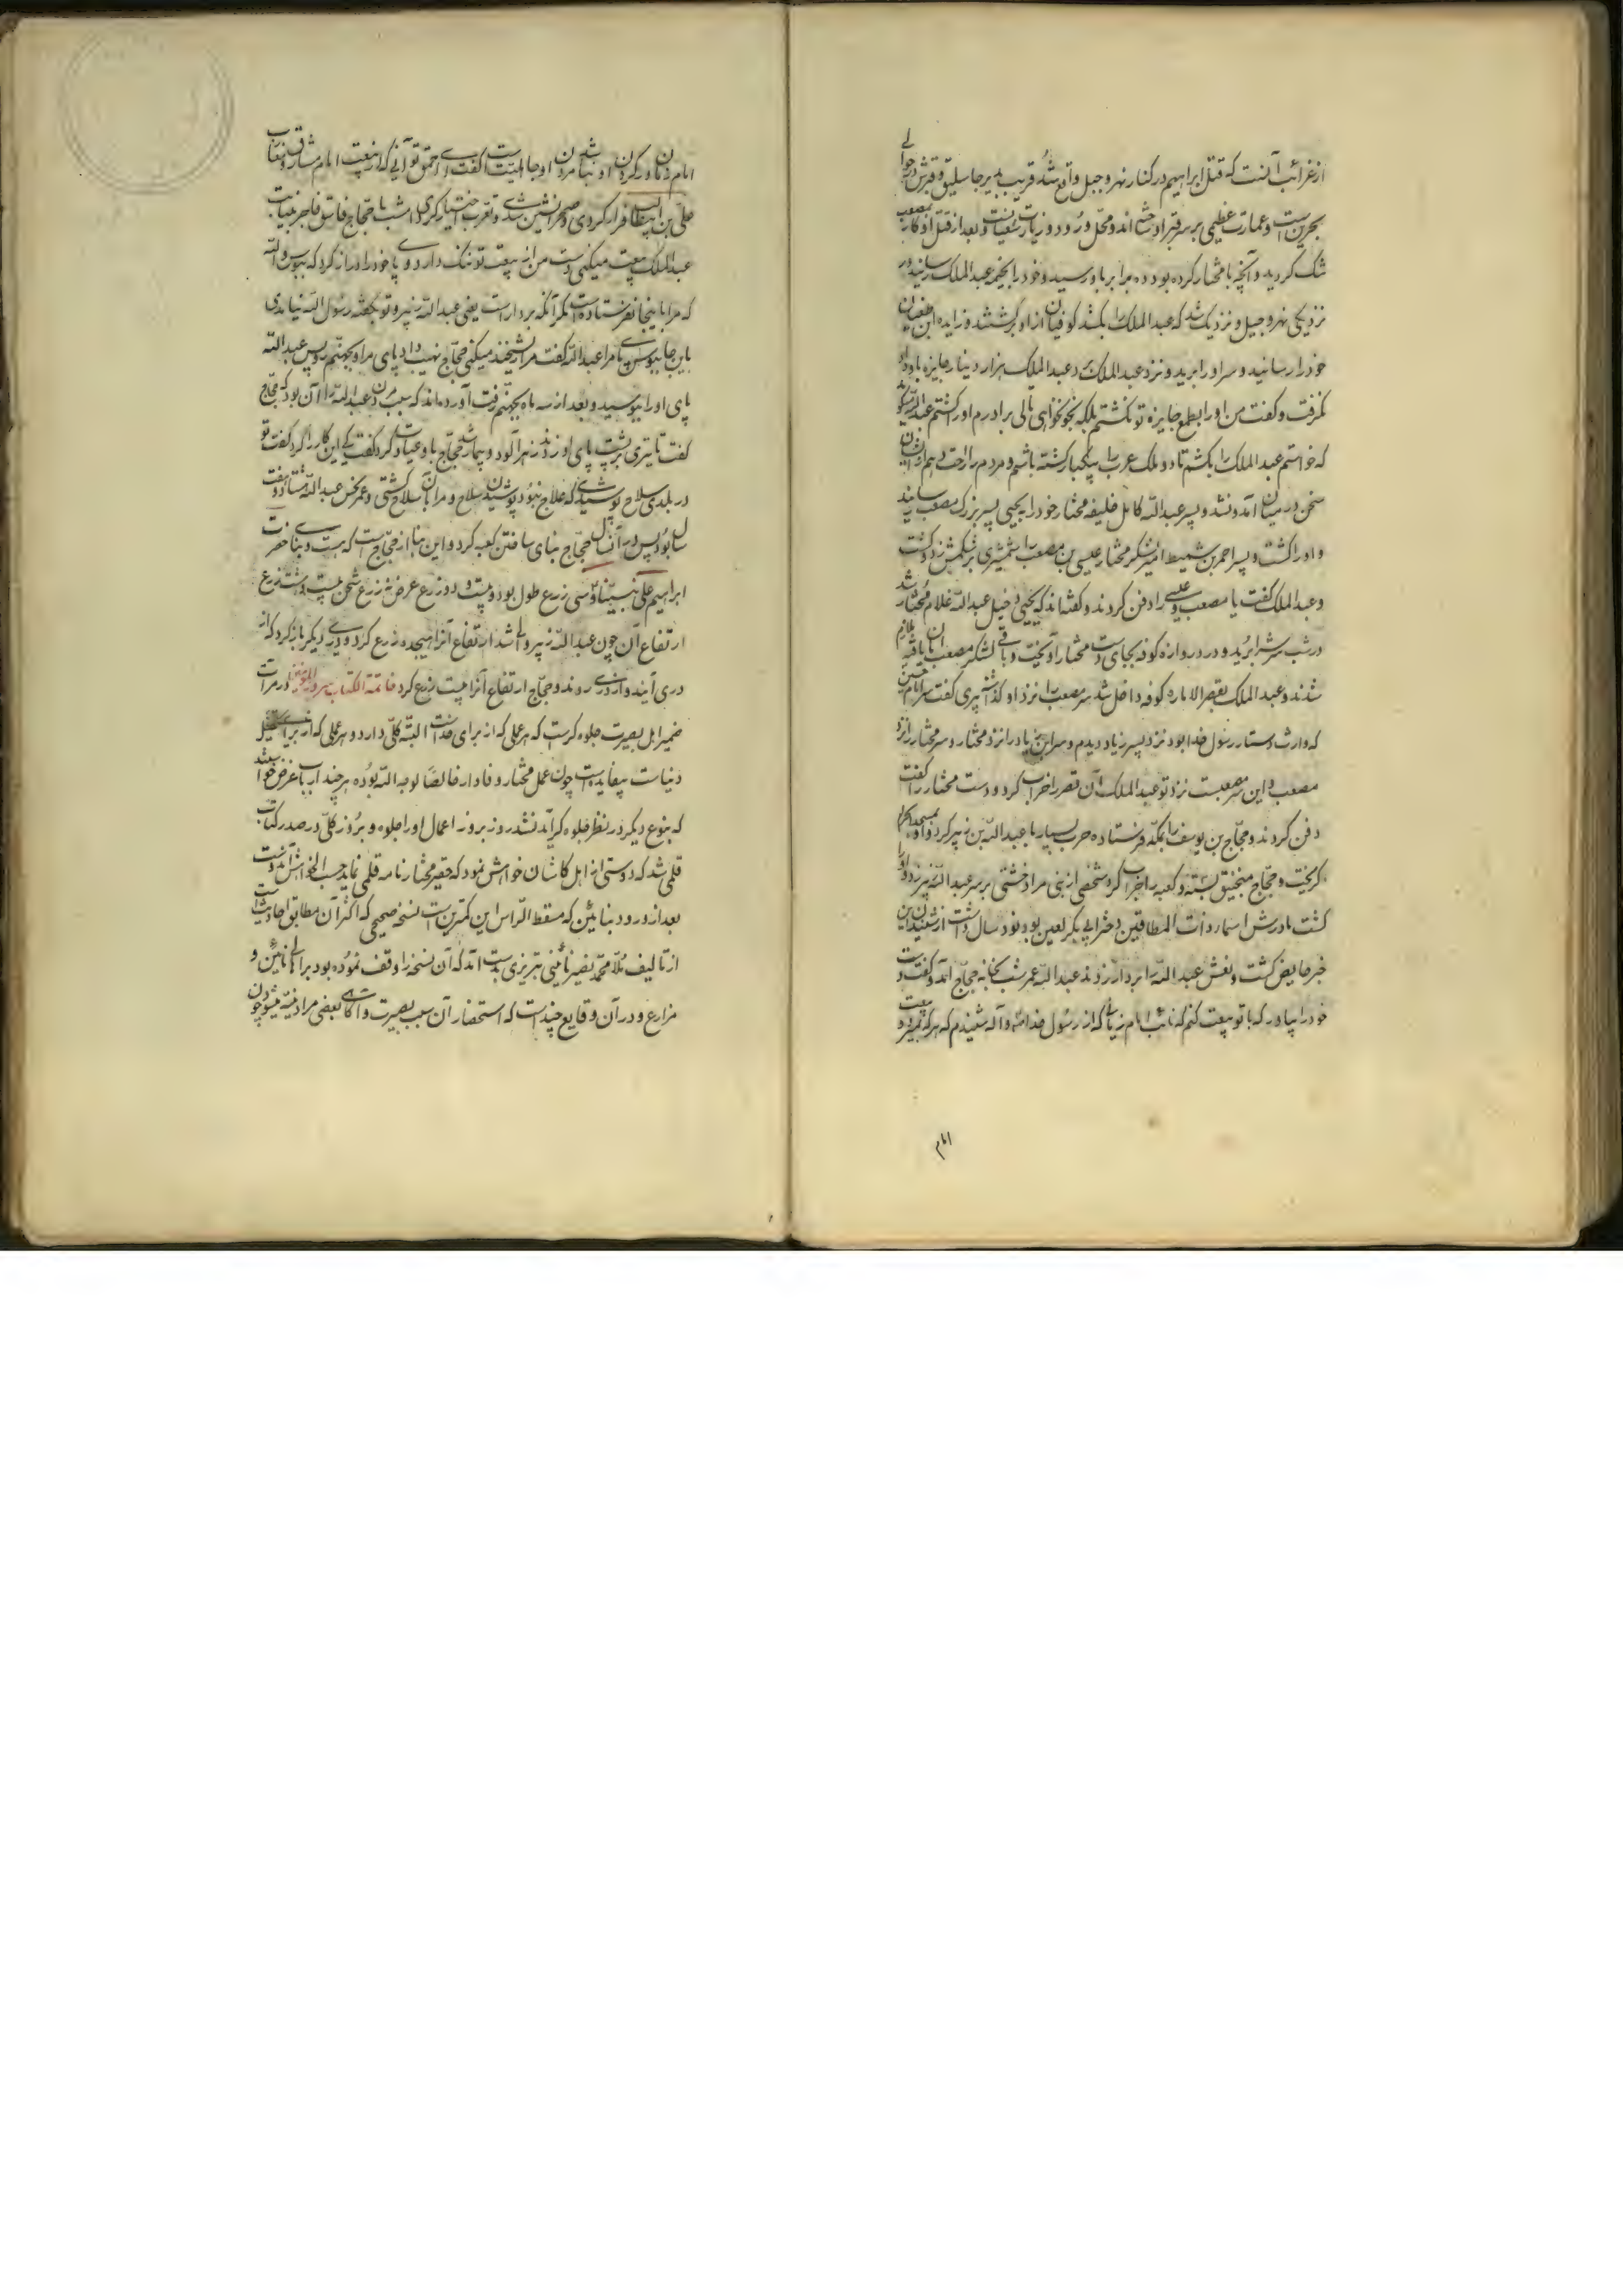 ازغرائب آنست که قتل ابراهیم در کنار نهر وجیل واقع شد قریب بدیر جاسلیق و قبرش در حوالے
بحرین است و عمارت عظیمی بر سر قبر او ساخته‌اند و محل ورود و زیارت شیعیانست و بعد از قتل او کار مصعب
شک گردید و آنچه با مختار کرده بود ده برابر باو رسید و خود را بخیمه عبدالملک رسانید در
نزدیکی نهر وجیل و نزدیک شد که عبدالملک را بکشد کوفیان از او برگشتند و زایده ابن
خود را رسانید و سر او را برید و نزد عبدالملک برد عبدالملک هزار دینار جایزه باو داد
نگرفت و گفت من او را بطمع جایزه تو نکشتم بلکه بخونخواهی برادرم او را کشتم عبدالملک گوید
که خواستم عبدالملک را بکشم تا دو ملک عرب را بیکبار کشته باشم و مردم را راحت دهم
سخن در میان آمد و نشد و پسر عبدالله کامل خلیفه مختار خود را به یحیی پسر بزرگ مصعب رسانید
و او را کشت و پسر احمر بن شمیط امیر لشکر مختار عیسی بن مصعب را شمشیری بر شکمش زد و کشت
و عبدالملک گفت تا مصعب و عیسی را دفن کردند و گفته‌اند که یحیی دخیل عبدالله غلام مختار شد
در شب سرش را برید و در دروازه کوفه بجای دست مختار آویخت و باقی لشکر مصعب
شدند و عبدالملک بقصر الاماره کوفه داخل شد سر مصعب را نزد او گذاشته پیری گفت سر امام حسین
که وارث دستار رسول خدا بود نزد پسر زیاد دیدم و سر ابن زیاد را نزد مختار و سر مختار را نزد
مصعب و این سر مصعبست نزد تو عبدالملک آن قصر را خراب کرد و دست مختار را گفت
دفن کردند و حجاج بن یوسف را بمکه فرستاده حرب بسیار با عبدالله بن زبیر کرد و او بمسجد الحرام
گریخت و حجاج منجنیق بسته و کعبه را خراب کرد شخصی از بنی مراد خشتی بر سر عبدالله زبیر زد و او را
کشت مادرش اسماء ذات النطاقین دختر ابی بکر لعین بود نود سال داشت از شنیدن این
خبر حایض گشت و نعش عبدالله را بر دار زدند عبدالله عمر شب بخانه حجاج آمد و گفت دست
خود را بیاور که با تو بیعت کنم که نائب امام زمانی که از رسول خدا شنیدم که هر که بمیرد و بیعت
امام
امام زمان در گردن او نباشد مردن او جاهلیت است گفت ای احمق تو آنی که از بیعت امام مشارق و مغارب
علی بن ابیطالب فرار کردی و صحرانشین شدی و تعرب اختیار کردی و امشب با حجاج فاسق فاجر
عبدالملک بیعت میکنی دست من از بیعت تو ننگ دارد و پا خود را دراز کرد که ببوس والله
که مرا باینجا نفرستاده است مگر آنکه بر دار است یعنی عبدالله زبیر و تو بگفته رسول الله نیامدی
باین جا ببوس پای مرا عبدالله گفت مرا ریشخند میکنی حجاج نهیب داد پای مرا و بجهنم رو پس عبدالله
پای او را بوسید و بعد از سه ماه بجهنم رفت آورده‌اند که سبب مردن عبدالله را آن بود که حجاج
گفت تا تیری بر پشت پای او زدند زهرآلود و بیمار شد حجاج با و عیادت کرد گفت که این کار را کرد گفت تو
در بلدی سلاح پوشیدی که علاج نبود پوشیدن سلاح و مرا بآن سلاح کشتی و عمر نحس عبدالله هشتاد و هفت
سال بود پس در آنسال حجاج بنای ساختن کعبه کرد و این بنا از حجاج است که هست و بنای حضرت
ابراهیم علی نبینا و سی زرع طول بود و بیست و دو زرع عرض نه زرع
ارتفاع آن چون عبدالله زبیر والی شد ارتفاع آنرا هیجده زرع کرد و دری دیگر باز کرد که از
دری آیند و از دری روند و حجاج ارتفاع آنرا بیست زرع کرد خاتمة الکتاب در مرآت
ضمیر اهل بصیرت جلوه گر است که هر عملی که از برای خداست البته کلی دارد و هر عملی که از برای تحصیل
دنیاست بیفایده است چون عمل مختار وفادار خالصا لوجه الله بوده هر چند ارباب غرض خواستند
که بنوع دیگر در نظر جلوه گر آید نشد روز بروز اعمال او را جلوه و بروز کلی در صدر کتاب
قلمی شد که دوستی از اهل کاشان خواهش نمود که حقیر مختار نامه قلمی نماید حسب الخواهش آن دوست
بعد از ورود بنائین که مسقط الراس این کمترین است نسخه صحیحی که اکثر آن مطابق احادیث است
از تالیف ملا محمد نصیر نائینی تبریزی بدست آمد که آن نسخه را وقف نموده بود بر اهالی نائین و
مزارع و در آن وقایع چند است که استحضار آن سبب بصیرت و آگاهی بعضی مراد نیه میشود چون